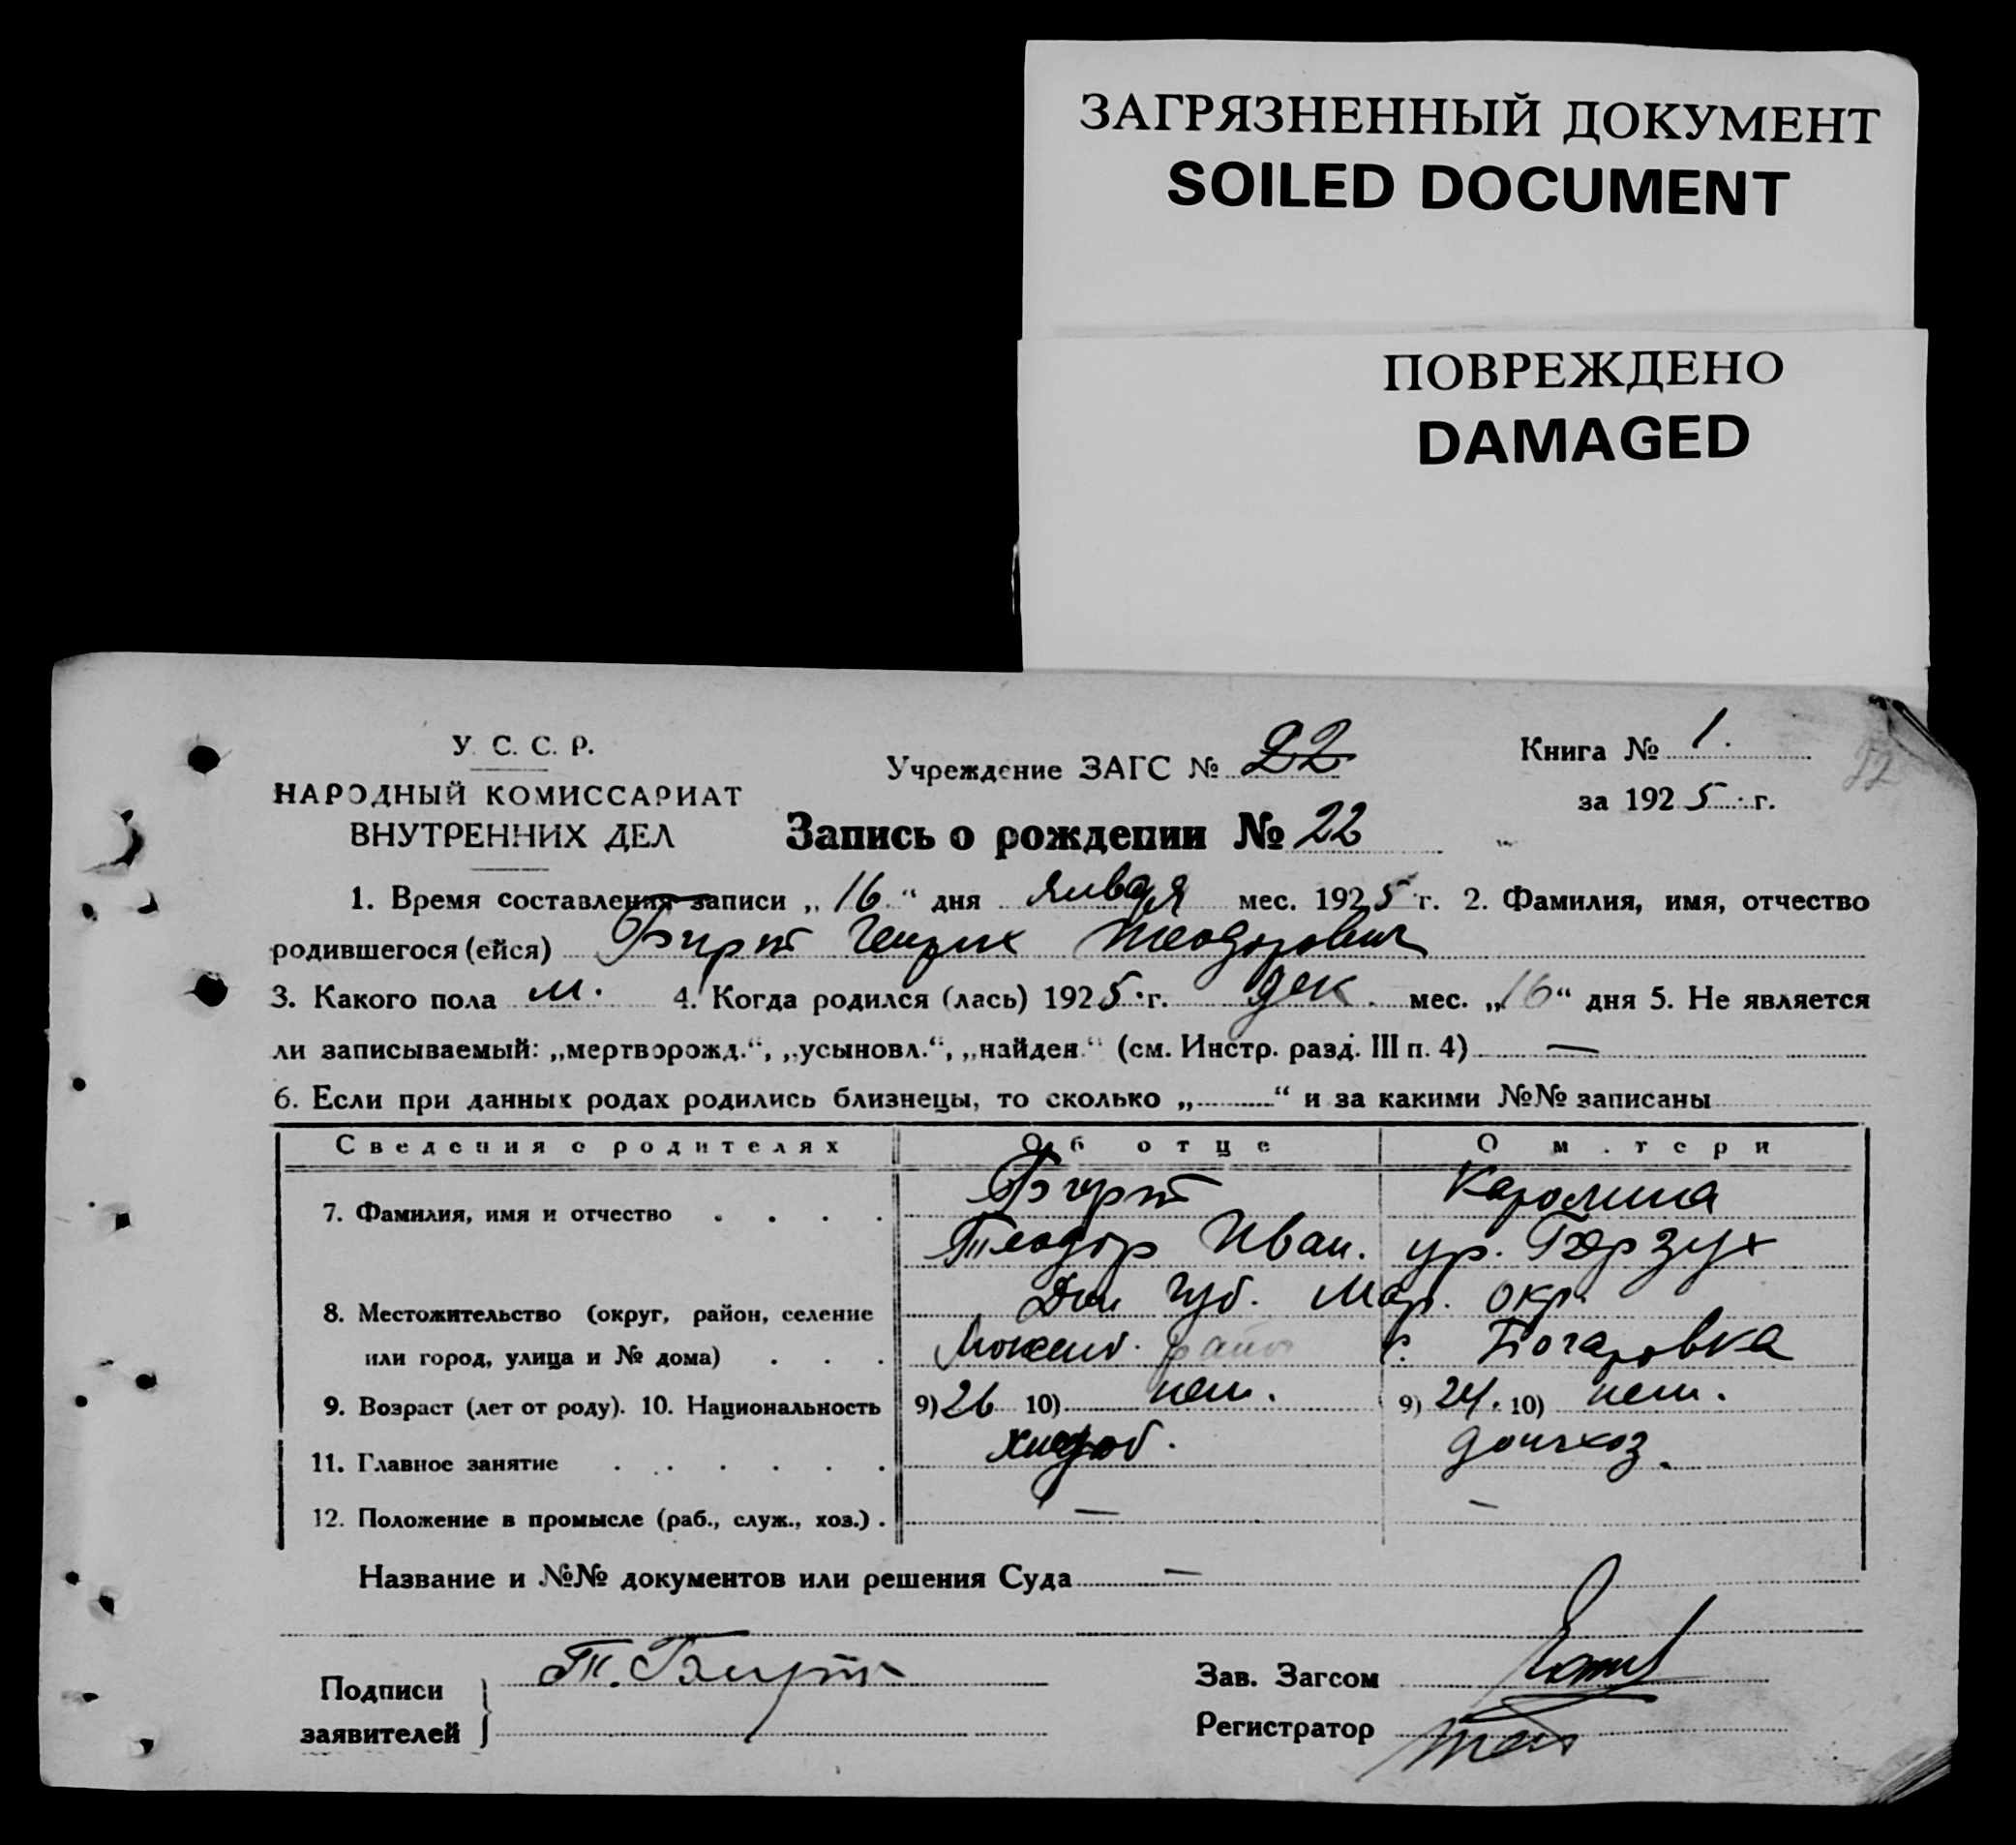 ЗАГРЯЗНЕННЫЙ ДОКУМЕНТ
SOILED DOCUMENT
ПОВРЕЖДЕНО
DAMAGED
У. С. С. Р.
НАРОДНЫЙ КОМИССАРИАТ
ВНУТРЕННИХ ДЕЛ
Учреждение ЗАГС № 22
Книга № 1.
за 1925 г.
Запись о рождении № 22
1. Время составления записи „16“ дня января мес. 1925 г. 2. Фамилия, имя, отчество
родившегося (ейся) Бирт Генрих Теодорович
3. Какого пола м. 4. Когда родился (лась) 1925 г. дек. мес. „16“ дня 5. Не является
ли записываемый: „мертворожд.“, „усыновл.“, „найден.“ (см. Инстр. разд. III п. 4) —
6. Если при данных родах родились близнецы, то сколько „ “ и за какими №№ записаны
Сведения о родителях Об отце О матери
7. Фамилия, имя и отчество Бирт Каролина
Теодор Иван. ур. Герзух
8. Местожительство (округ, район, селение Дон губ. Мар. окр.
или город, улица и № дома) район с.
9. Возраст (лет от роду). 10. Национальность 9) 26 10) нем. 9) 24. 10) нем.
11. Главное занятие хлероб. домхоз.
12. Положение в промысле (раб., служ., хоз.) — —
Название и №№ документов или решения Суда —
Подписи заявителей Т. Бирт
Зав. Загсом
Регистратор